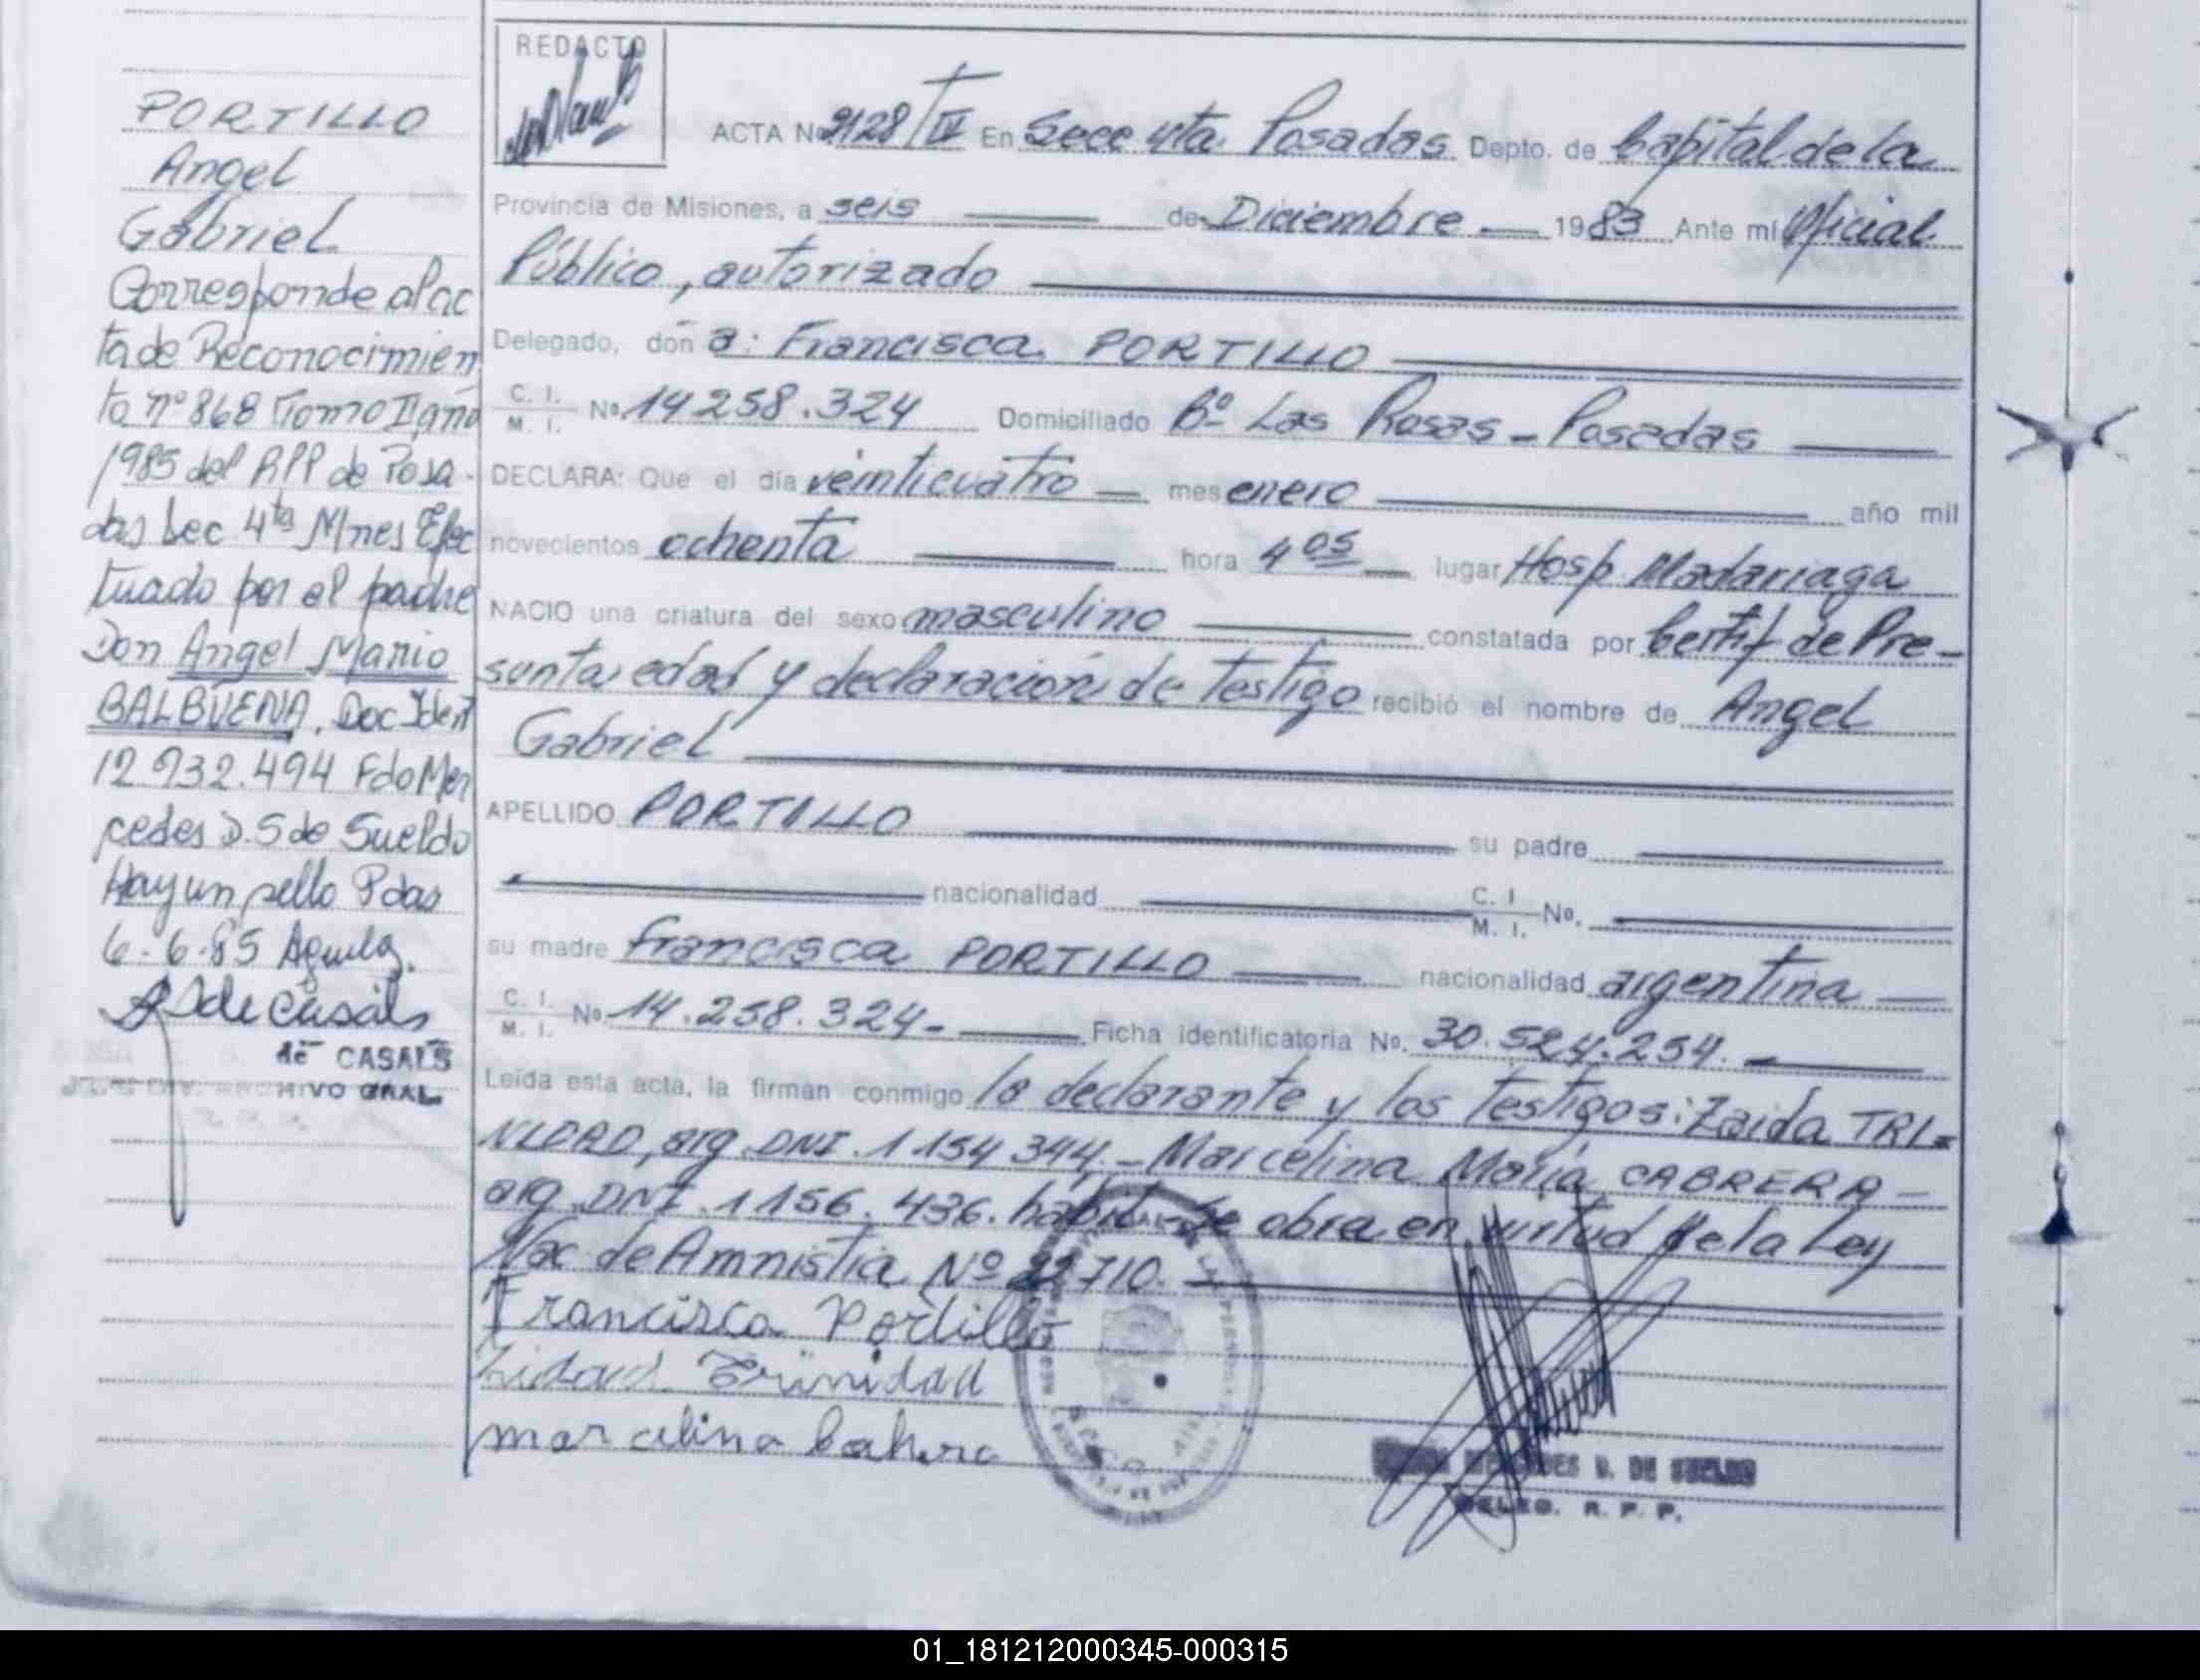 PORTILLO
Angel
Gabriel
Corresponde al ac
ta de Reconocimien
to nº 868 Tomo II año
1985 del RPP de Posa-
das Sec 4ta Mnes Efec
tuado por el padre
Don Angel Mario
BALBUENA, Doc Ident
12.932.494 Fdo Mer
cedes D. S de Sueldo
Hay un sello Pdas
6-6-85
de Casals
de CASALS
JEFE DIV. ARCHIVO GRAL.
R. P. P.
REDACTO
ACTA No 2128/IV En Secc 4ta. Posadas Depto. de Capital de la
Provincia de Misiones, a seis de Diciembre 1983 Ante mí Oficial
Público, autorizado
Delegado, don a: Francisca PORTILLO
C. I. M. I. No. 14258.324 Domiciliado Bº Las Rosas - Posadas
DECLARA: Que el día veinticuatro mes enero año mil
novecientos ochenta hora 4 05 lugar Hosp. Madariaga
NACIO una criatura del sexo masculino constatada por Certif de Pre-
sunta edad y declaración de testigo recibió el nombre de Angel
Gabriel
APELLIDO PORTILLO su padre
nacionalidad C. I. M. I. No.
su madre Francisca PORTILLO nacionalidad argentina
C. I. M. I. No. 14.258.324- Ficha identificatoria No. 30.524.254.
Leída esta acta, la firman conmigo la declarante y los testigos: Zaida TRI=
NIDAD, arg. DNI. 1 154 344.- Marcelina María CABRERA-
arg. DNI. 1156. 436. habil- Se obra en virtud de la Ley
Nac de Amnistia Nº 22 710.
Francisca Portillo
Trinidad
marcelina Cabrera
MERCEDES D. DE SUELDO
DELEG. R. P. P.
01_181212000345-000315